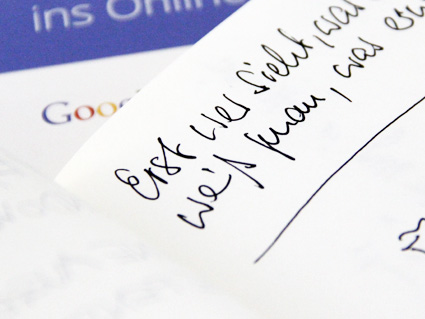 ins Onlin
Goog
Erst wer sieht, was
weiß man, was